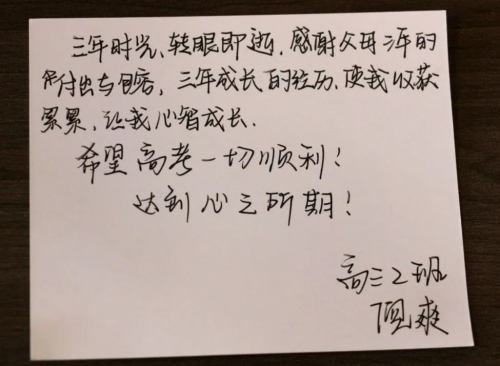 三年时光,转眼即逝,感谢父母三年的
付出与包容,三年成长的经历,使我收获
累累,让我心智成长.
希望高考一切顺利!
达到心之所期!
高三2班
爽